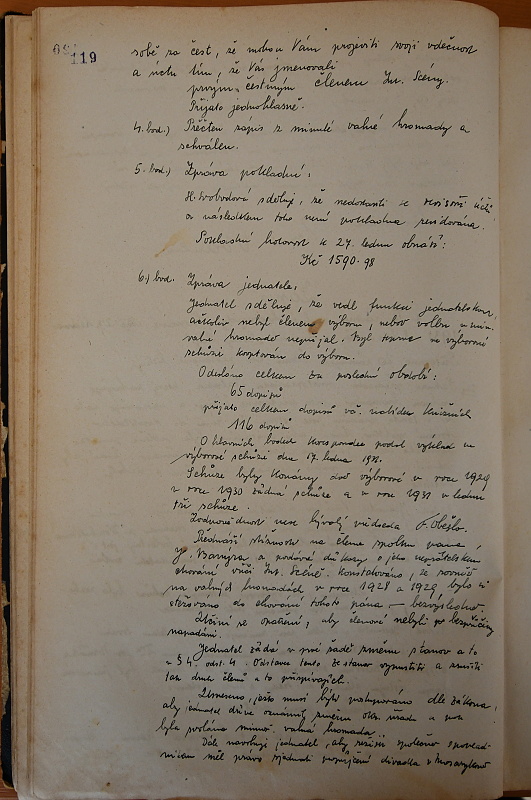 119
sobě za čest, že mohou Vám projeviti svoji vděčnost
a úctu tím, že Vás jmenovali
prvým čestným členem Int. Scény.
Přijato jednohlasně.
4. bod.) Přečten zápis z minulé valné hromady a
schválen.
5. bod.) Zpráva pokladní:
Svobodová sděluje, že nedostavili se revisoři účtů
a následkem toho není pokladna revidována.
Pokladní hotovost k 27. lednu obnáší:
Kč 1590.98
6.) bod. Zpráva jednatele:
Jednatel sděluje, že vedl funkci jednatelskou,
ačkoliv nebyl členem výboru, neboť volbu
valné hromadě nepřijal. Byl ve výborové
schůzi kooptován do výboru.
Odesláno celkem za poslední období:
65 dopisů
přijato celkem dopisů vč. nabídek knižních
116 dopisů
O hlavních bodech korespondence podal výklad ve
výborové schůzi dne 17. ledna
Schůze byly konány dvě výborové v roce 1929
v roce 1930 žádná schůze a v roce 1931 v lednu
tři schůze.
Zodpovědnost nese bývalý předseda F. Obešlo.
Přednáší stížnost na člena spolku pana
a podává důkazy o jeho nepřátelském
chování vůči Int. Scéně. Konstatováno, že rovněž
na valných hromadách v roce 1928 a 1929 bylo
stěžováno do chování tohoto pána – bezvýsledně.
se opatření, aby členové nebyli
napadáni.
Jednatel žádá v prvé řadě změnu stanov a to
v § 4. odst. 4. Odstavec tento ze stanov vypustiti a zrušiti
tak druh členů a to přispívajících.
jesto musí býti postupováno dle zákona,
aby jednatel dříve oznámil změnu okr. úřadu a pak
byla svolána mimoř. valná hromada.
Dále navrhuje jednatel, aby režisér společně s poklad-
níkem měl právo sjednati propůjčení divadla v Masarykově